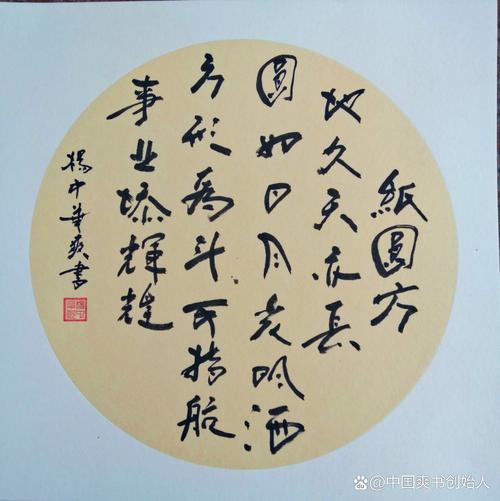 紙圓方
地久天亦長
圓如日月光明洒
方形為斗可指航
事业添輝煌
楊中華爽書
@中国爽书创始人